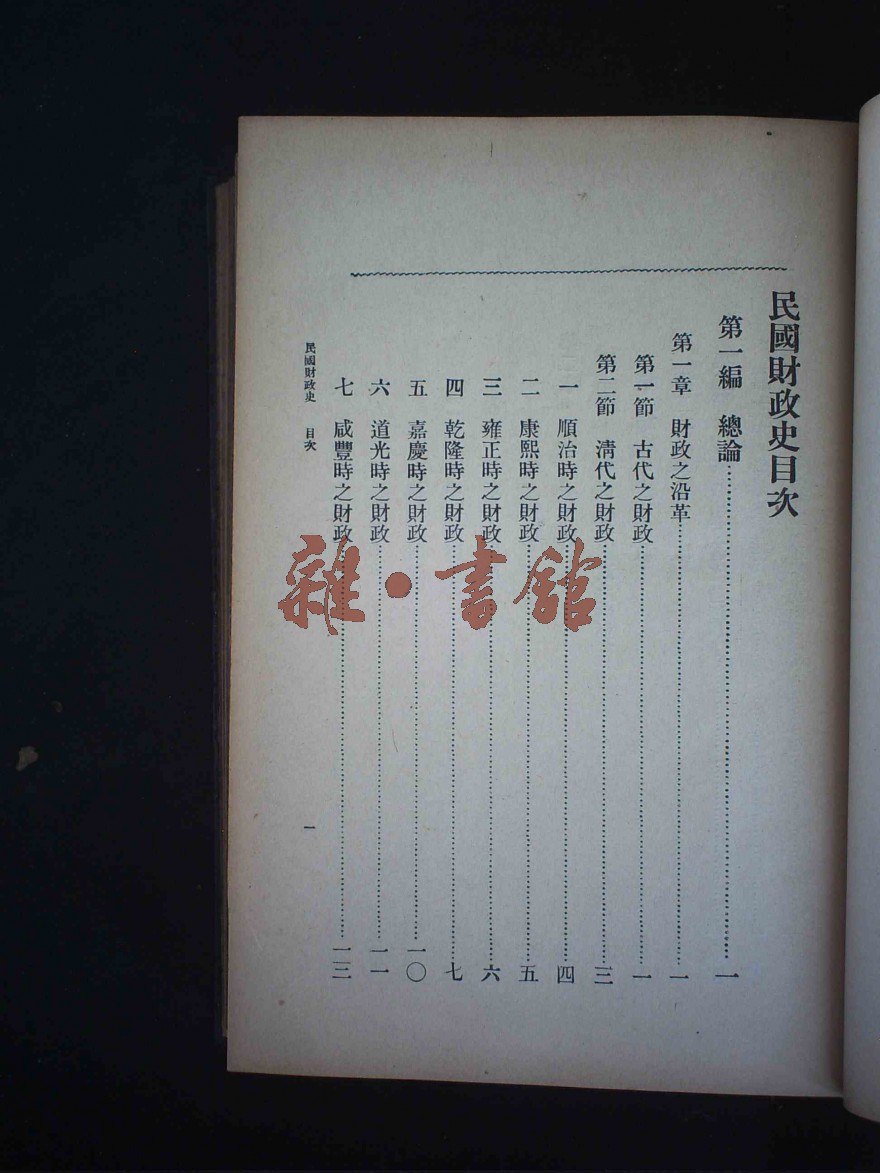 民國財政史目次
第一編　總論……一
第一章　財政之沿革……一
第一節　古代之財政……一
第二節　淸代之財政……三
一　順治時之財政……四
二　康熙時之財政……五
三　雍正時之財政……六
四　乾隆時之財政……七
五　嘉慶時之財政……一〇
六　道光時之財政……一一
七　咸豐時之財政……一三
民國財政史　目次
一
雜·書館